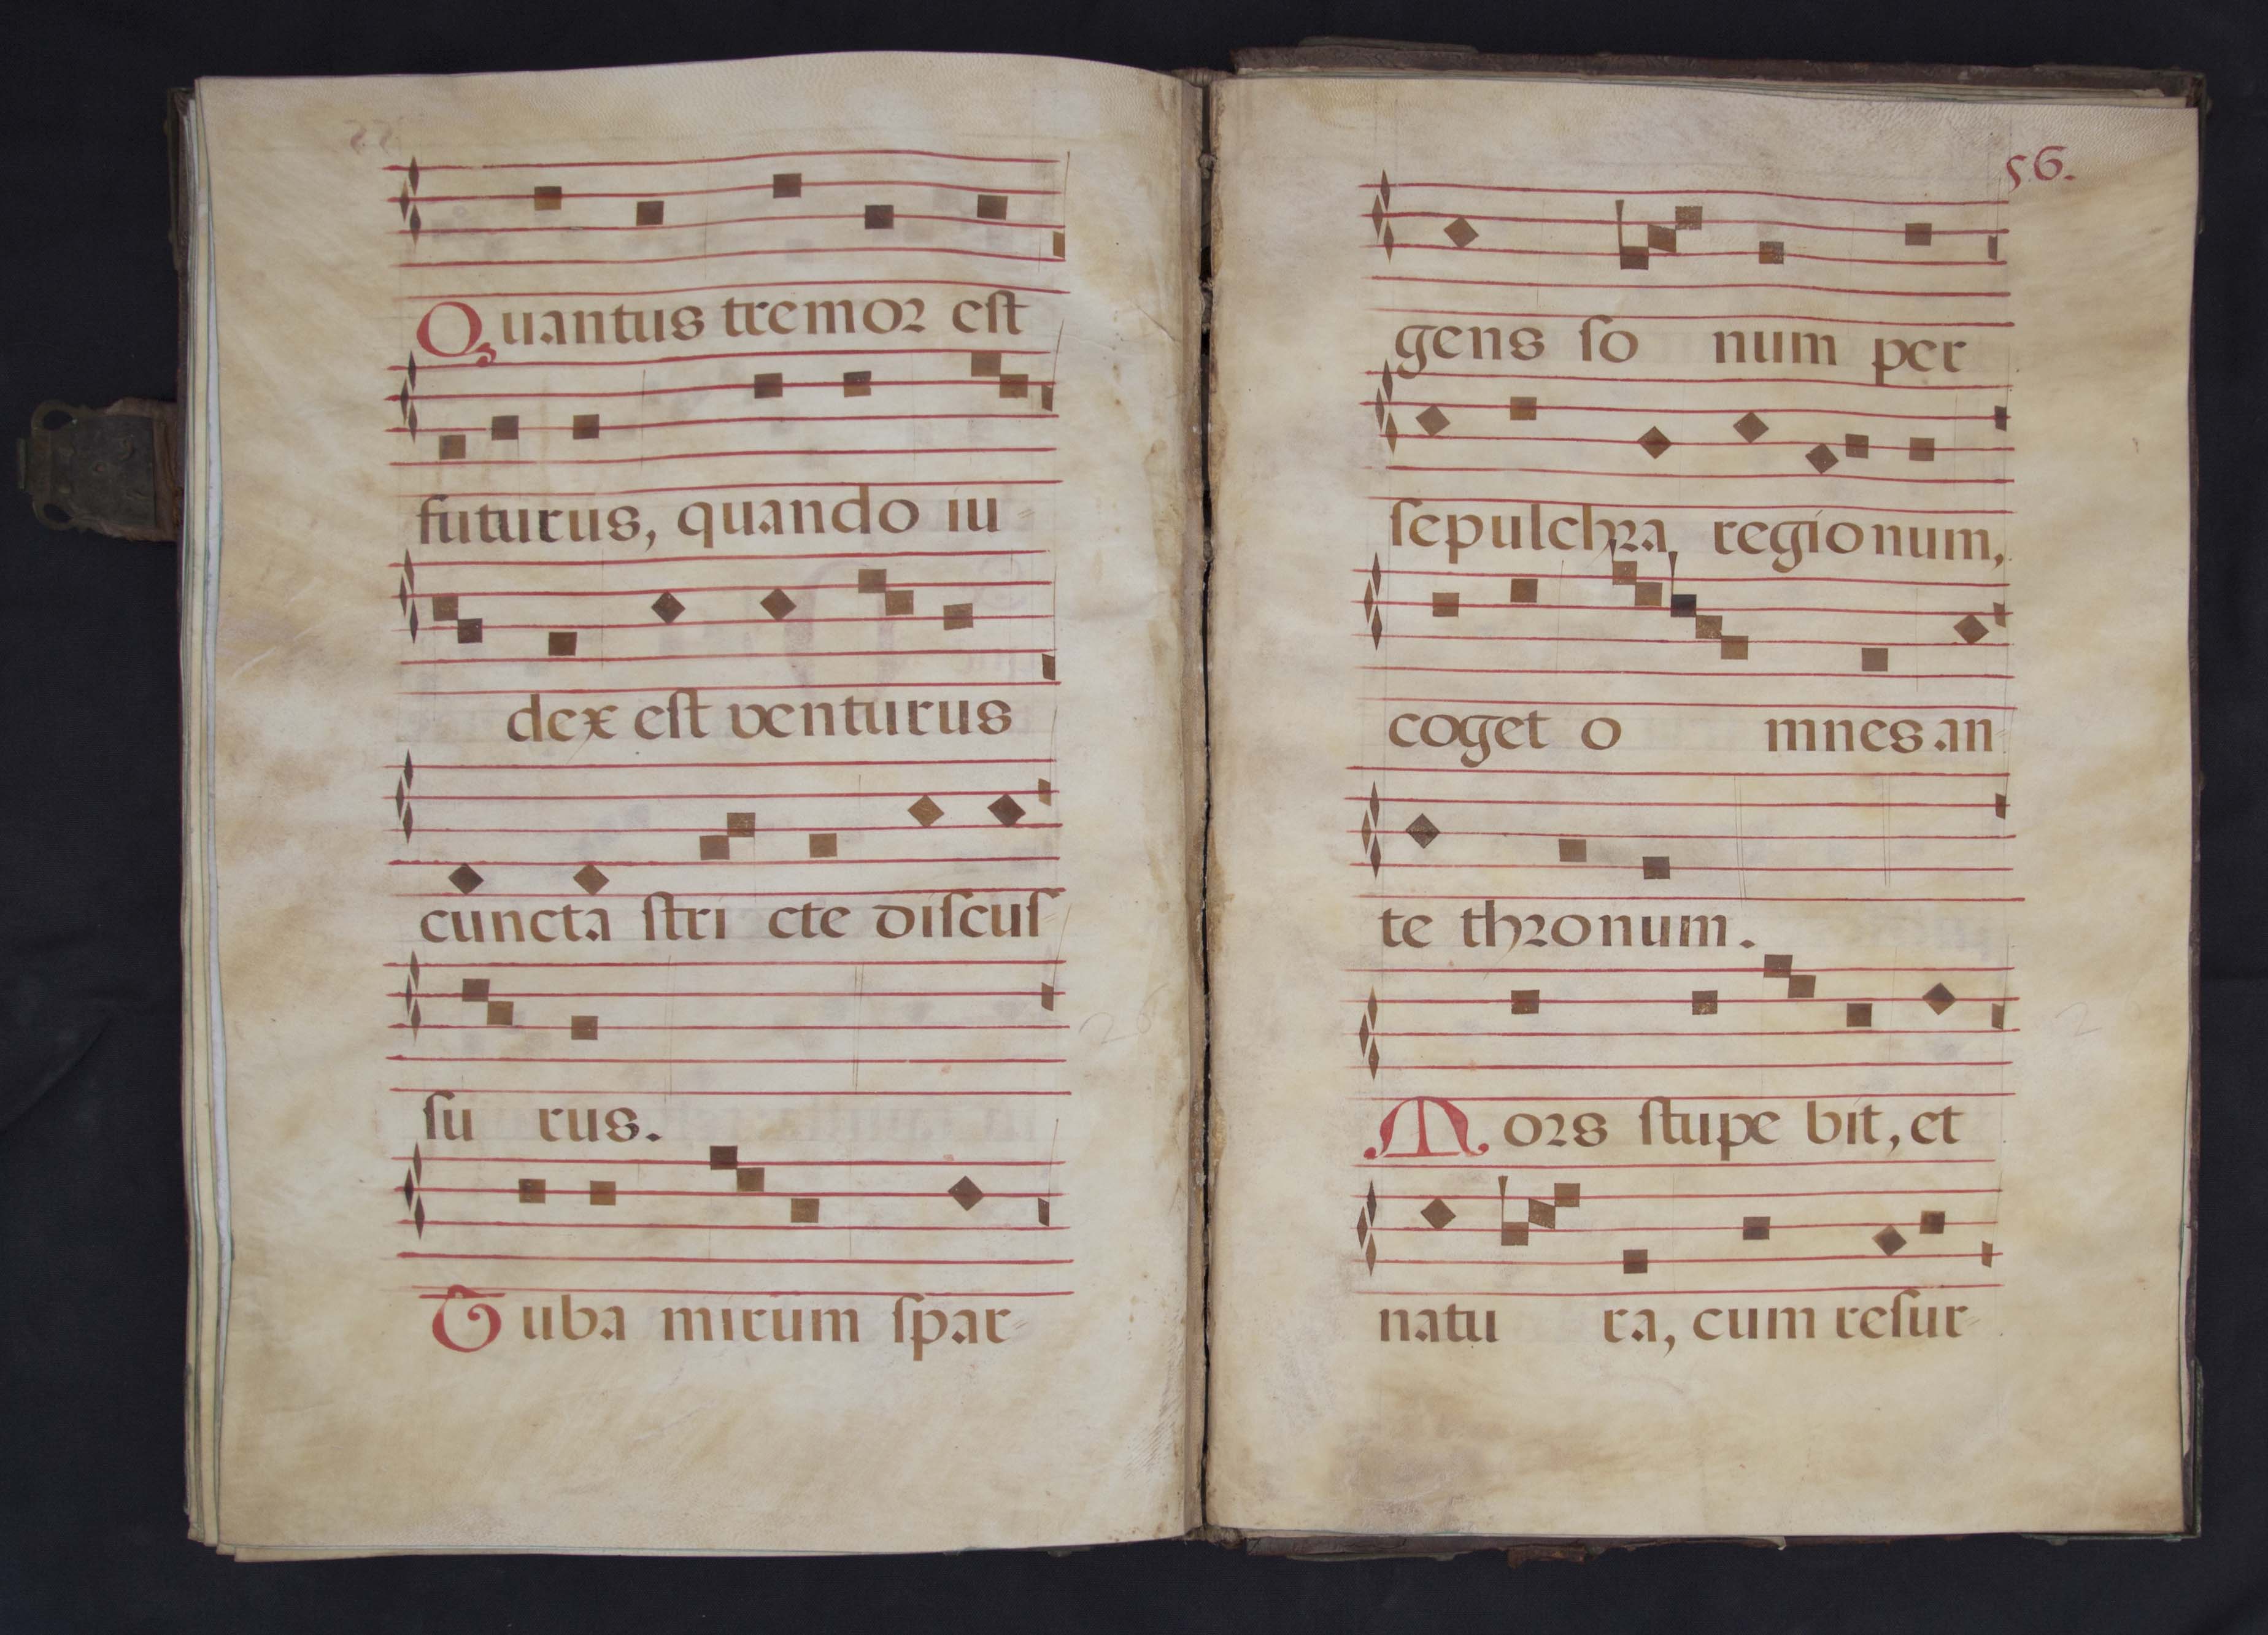 Quantus tremor est
futurus, quando iu
dex est venturus
cuncta ſtri cte diſcuſ
ſu rus.
Tuba mirum ſpar-
56.
gens ſo num per
ſepulchra regionum,
coget o mnes an
te thronum.
Mors ſtupe bit, et
natu ra, cum reſur-